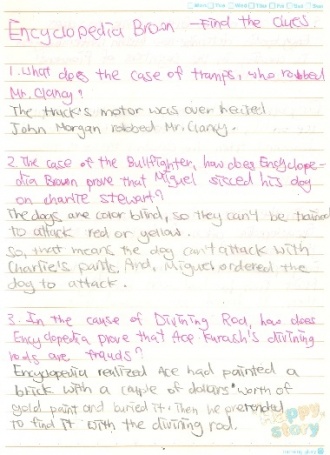 Encyclopedia Brown -Find the Clues
1. What does the case of tramps, who robbed
Mr. Clancy?
The truck's motor was over heited
John Morgan robbed Mr. Clancy.
2. The case of the Bullfighter, how does Encyclope-
dia Brown prove that Miguel sicced his dog
on charlie stewart?
The dogs are color blind, so they can't be trained
to attack red or yellow.
So, that means the dog can't attack with
Charlie's pants. And, Miguel ordered the
dog to attack.
3. In the cause of Divining Rod, how does
Encyclopedia prove that Ace Kurash's divining
rods are frauds?
Encyclopedia realized Ace had painted a
brick with a couple of dollars' worth of
gold paint and buried it. Then he pretended
to find it with the divining rod.
Happy
Story